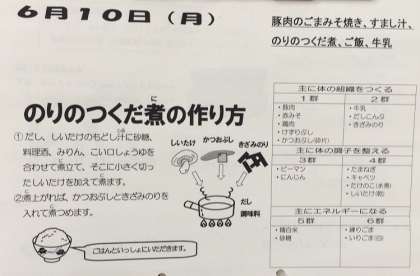 6月10日(月)
豚肉のごまみそ焼き、すまし汁、
のりのつくだ煮、ご飯、牛乳
のりのつくだ煮の作り方
に
①だし、しいたけのもどし汁に砂糖、
料理酒、みりん、こい口しょうゆを
合わせて煮立て、そこに小さく切っ
たしいたけを加えて煮ます。
②煮上がれば、かつおぶしときざみのりを
入れて煮つめます。
しいたけ
かつおぶし
きざみのり
だし
調味料
ごはんといっしょにいただきます。
主に体の組織をつくる
1群 2群
・豚肉 ・牛乳
・赤みそ ・だしこんぶ
・鶏肉 ・きざみのり
・けずりぶし
・かつおぶし(砕片)
主に体の調子を整える
3群 4群
・ピーマン ・たまねぎ
・にんじん ・キャベツ
・たけのこ(水煮)
・しいたけ(乾)
主にエネルギーになる
5群 6群
・精白米 ・練りごま
・砂糖 ・いりごま(白)